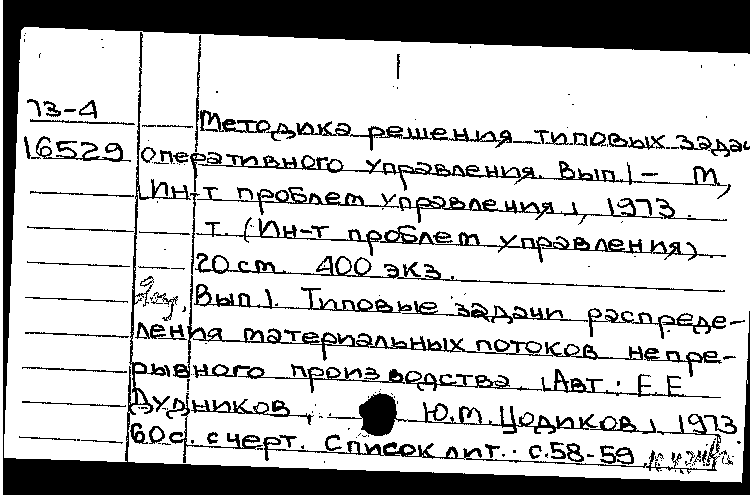 73-4
Методика решения типовых задач
16529 оперативного управления. Вып.1- М,
[Ин-т проблем управления], 1973.
т. (Ин-т проблем управления).
20см. 400 экз.
Вып.1. Типовые задачи распреде-
ления материальных потоков непре-
рывного производства. [Авт.: Е.Е
Дудников, Ю.М. Цодиков], 1973
60с. с черт. Список лит.: с.58-59